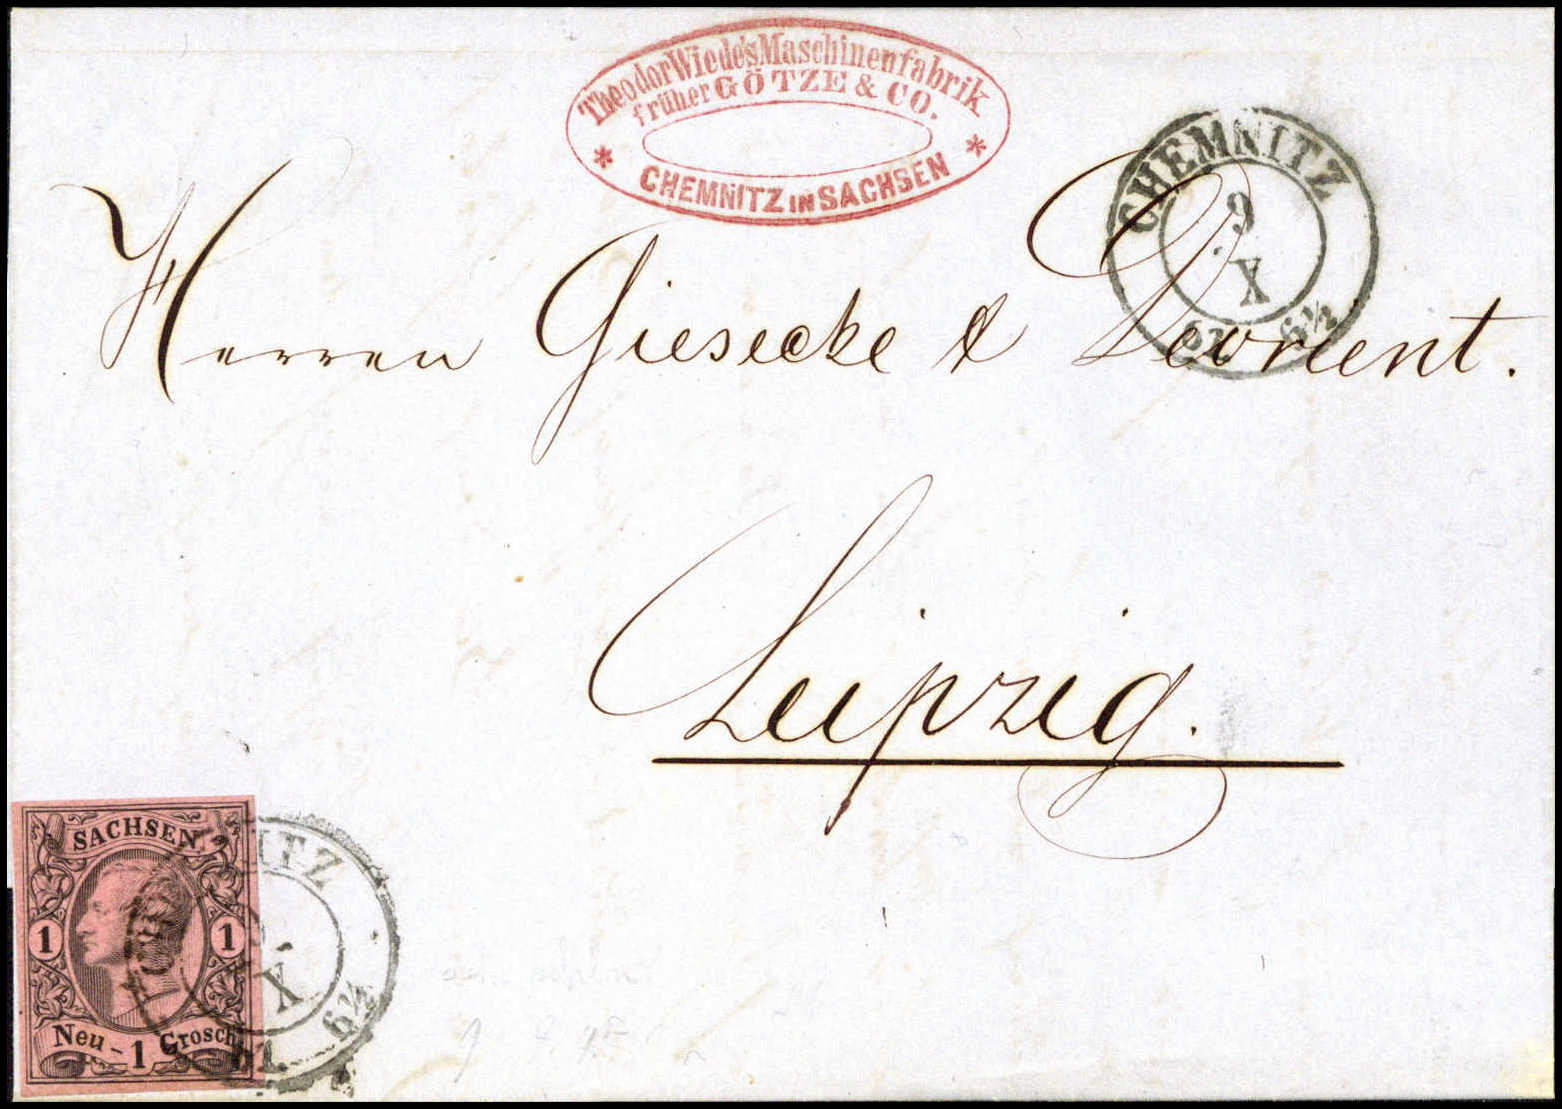 Theodor Wiede's Maschinenfabrik
früher GÖTZE & CO.
* CHEMNITZ IN SACHSEN *
CHEMNITZ
9
X
61 6½
Herren Giesecke & Devrient.
Leipzig.
SACHSEN
1 1
Neu- 1 Grosch
X
61 6½